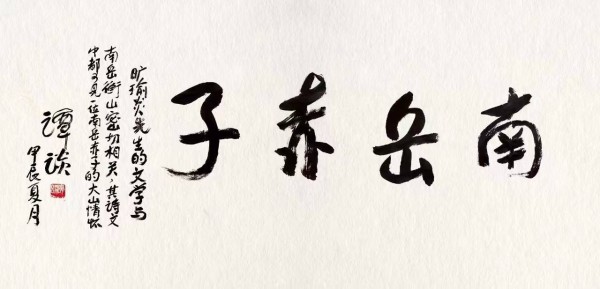 南岳赤子
旷瑜炎先生的文学与
南岳衡山密切相关，其诗文
中都可见一位南岳赤子的大山情怀
谭谈
甲辰夏月